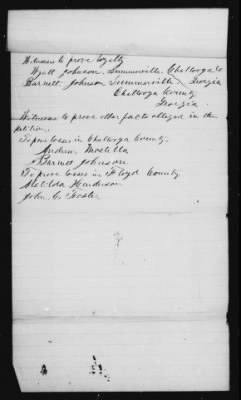 Witnesses to prove loyalty
Wyatt Johnson, Summerville, Chattooga Co
Barnett Johnson Summerville, Georgia
Chattooga County
Georgia.
Witnesses to prove other facts alleged in the
petition.
To prove losses in Chattooga County.
Andrew
Barnett Johnson
To prove losses in Floyd County.
Matilda Henderson
John C. Foster